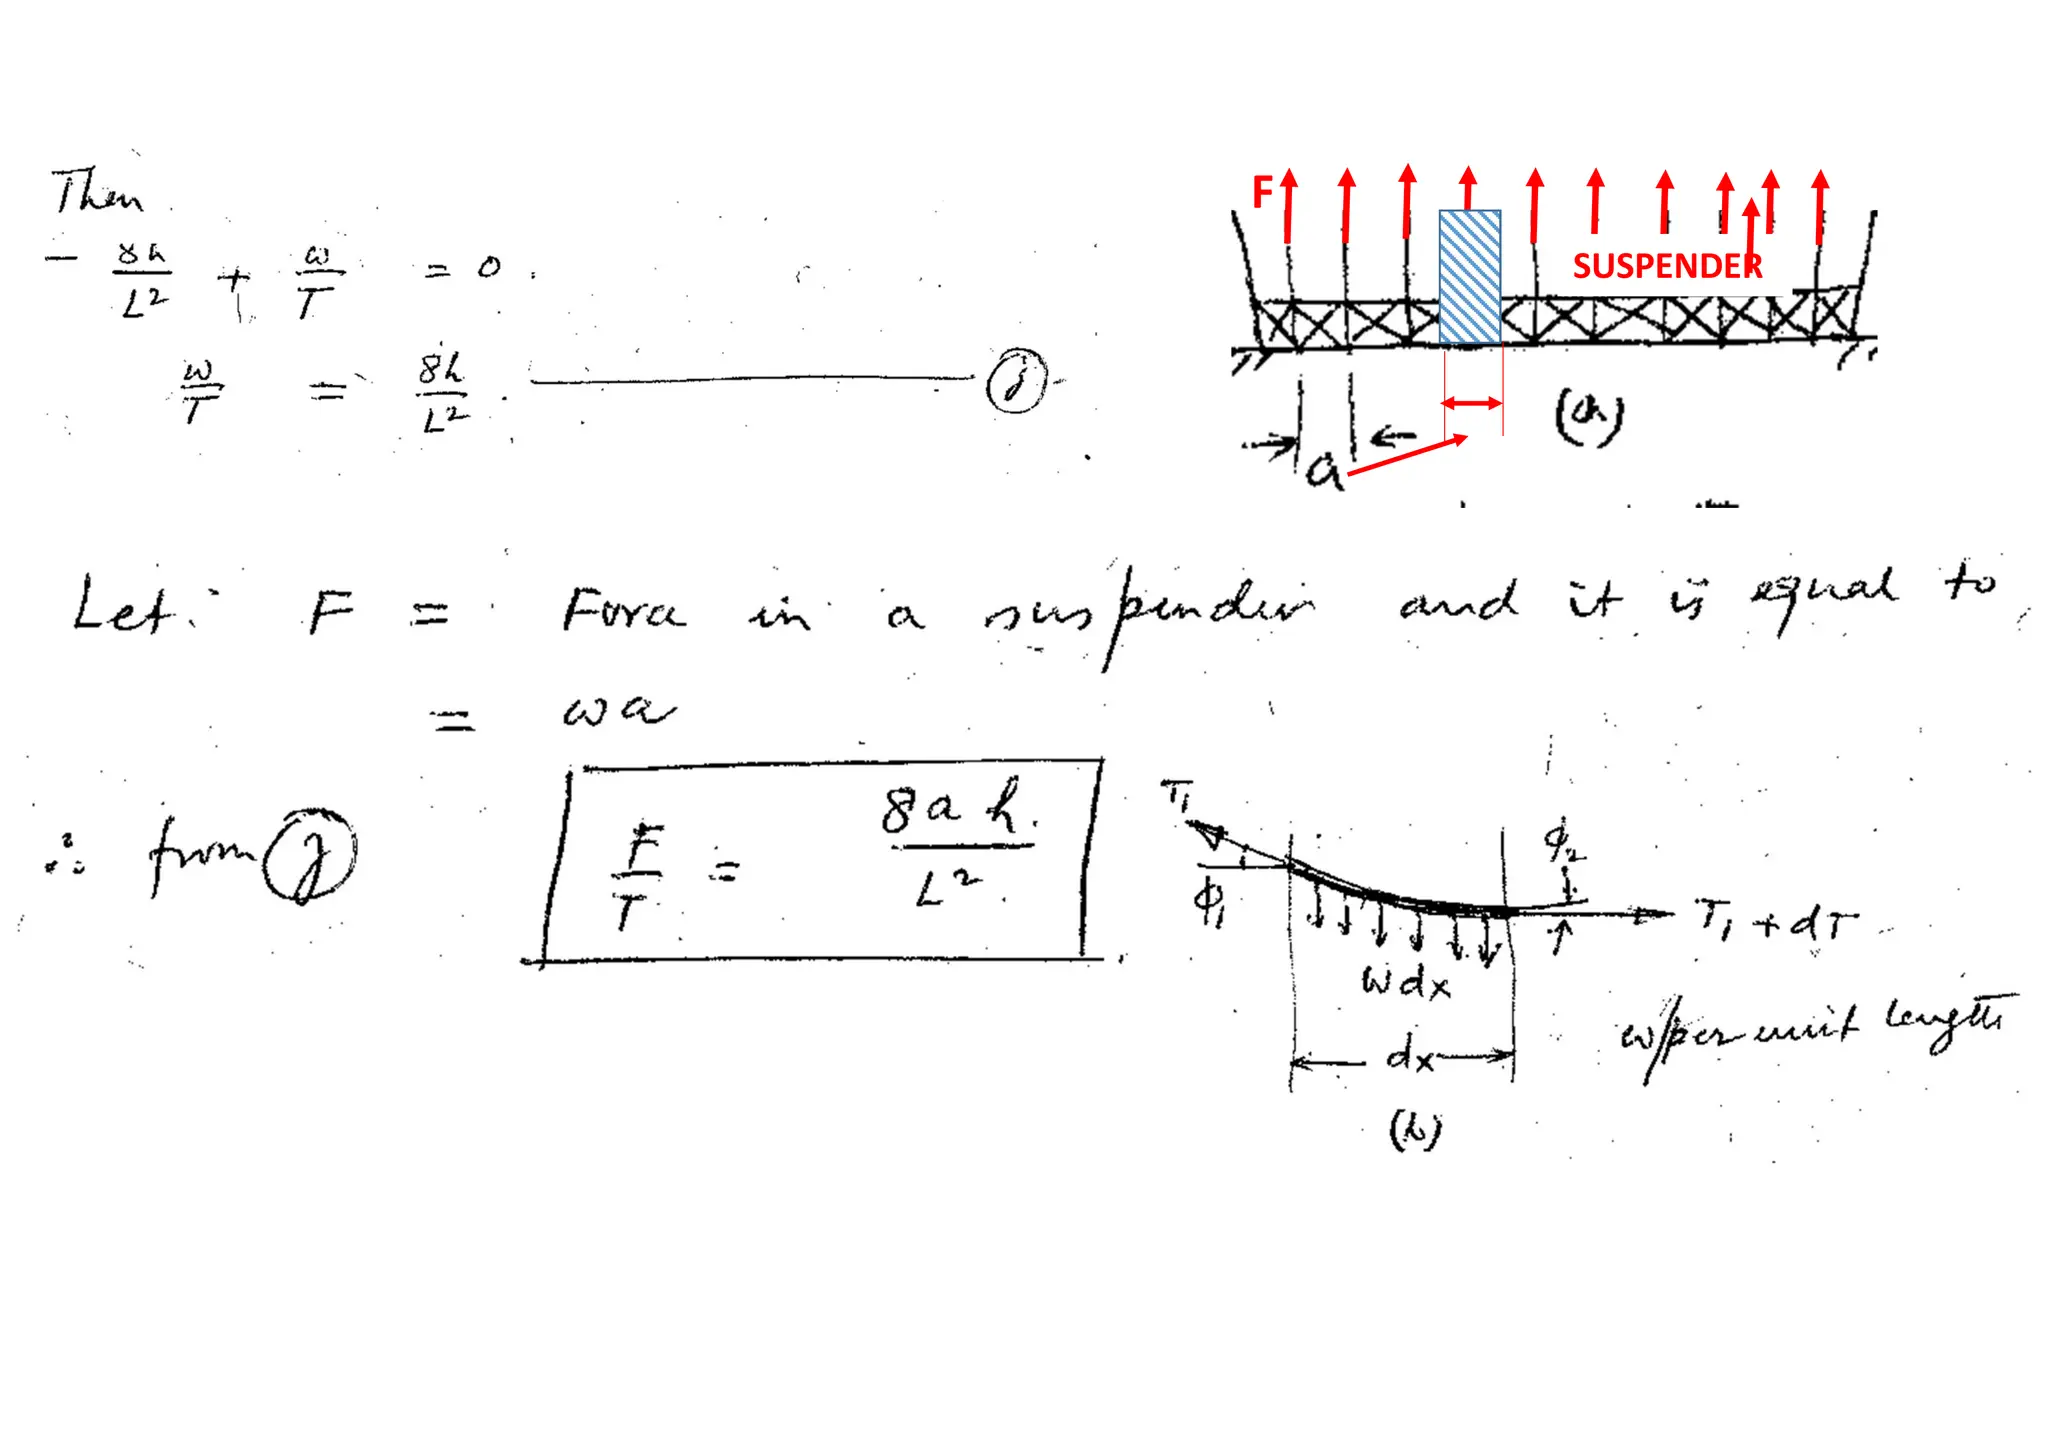 Then
- 8h/L² + w/T = 0.
w/T = 8h/L². ——— (j)
F
SUSPENDER
a
(a)
Let: F = Force in a suspender and it is equal to
= wa
∴ from (j) F/T = 8ah/L².
T₁
ϕ₁
ϕ₂
T₁ + dT
w dx
w/per unit length
dx
(b)